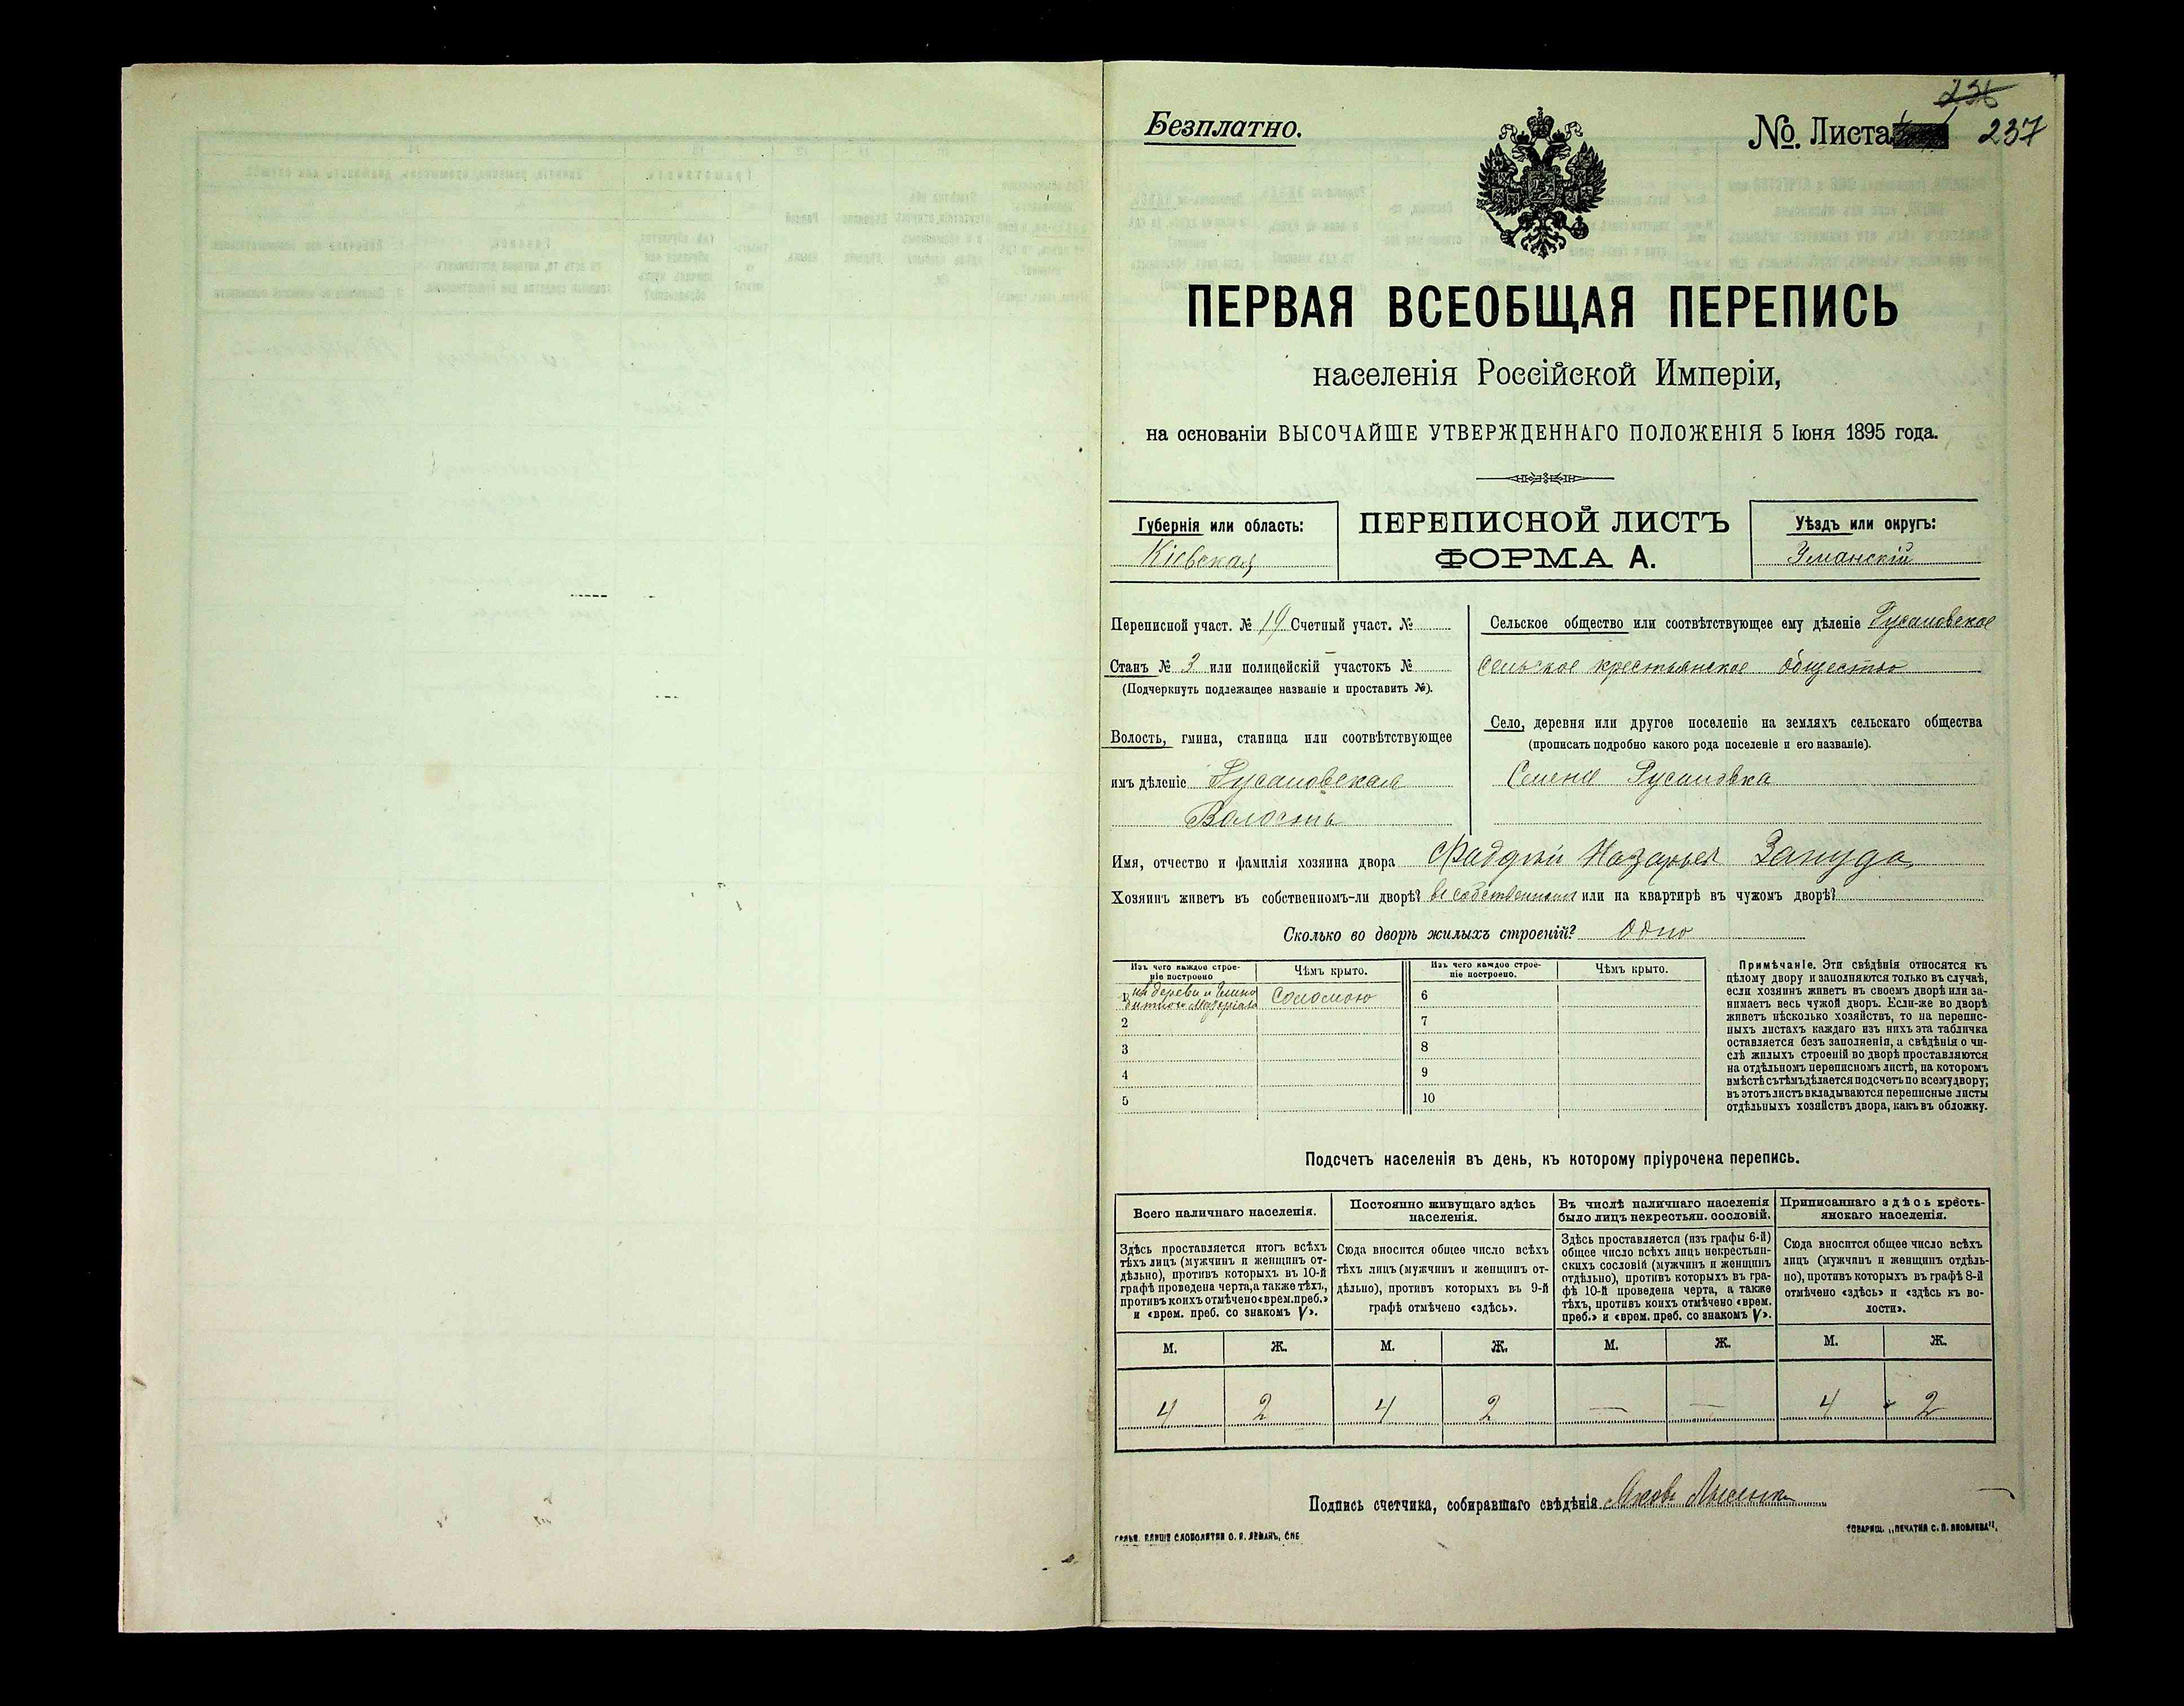 236
Безплатно.
№. Листа 237
ПЕРВАЯ ВСЕОБЩАЯ ПЕРЕПИСЬ
населенія Россійской Имперіи,
на основаніи ВЫСОЧАЙШЕ УТВЕРЖДЕННАГО ПОЛОЖЕНІЯ 5 Іюня 1895 года.
Губернія или область:
Кіевская
ПЕРЕПИСНОЙ ЛИСТЪ
ФОРМА А.
Уѣздъ или округъ:
Уманскій
Переписной участ. № 19 Счетный участ. №
Станъ № 3 или полицейскій участокъ №
(Подчеркнуть подлежащее названіе и проставить №).
Волость, гмина, станица или соотвѣтствующее
имъ дѣленіе Русаловская
Волость
Сельское общество или соотвѣтствующее ему дѣленіе Русаловское
сельское крестьянское общество
Село, деревня или другое поселеніе на земляхъ сельскаго общества
(прописать подробно какого рода поселеніе и его названіе).
Русаловка
Имя, отчество и фамилія хозяина двора Фадѣй Назарьев Зануда
Хозяинъ живетъ въ собственномъ-ли дворѣ? въ собственномъ или на квартирѣ въ чужомъ дворѣ?
Сколько во дворѣ жилыхъ строеній? Одно
Изъ чего каждое строе-
ніе построено
Чѣмъ крыто.
Изъ чего каждое строе-
ніе построено.
Чѣмъ крыто.
1 изъ дерева и глино
битнаго матеріала
Соломою
2
3
4
5
6
7
8
9
10
Примѣчаніе. Эти свѣдѣнія относятся къ
цѣлому двору и заполняются только въ случаѣ,
если хозяинъ живетъ въ своемъ дворѣ или за-
нимаетъ весь чужой дворъ. Если-же во дворѣ
живетъ нѣсколько хозяйствъ, то на перепис-
ныхъ листахъ каждаго изъ нихъ эта табличка
оставляется безъ заполненія, а свѣдѣнія о чи-
слѣ жилыхъ строеній во дворѣ проставляются
на отдѣльномъ переписномъ листѣ, на которомъ
вмѣстѣ съ тѣмъ дѣлается подсчетъ по всему двору;
въ этотъ листъ вкладываются переписные листы
отдѣльныхъ хозяйствъ двора, какъ въ обложку.
Подсчетъ населенія въ день, къ которому пріурочена перепись.
Всего наличнаго населенія.
Постоянно живущаго здѣсь
населенія.
Въ числѣ наличнаго населенія
было лицъ некрестьян. сословій.
Приписаннаго здѣсь кресть-
янскаго населенія.
Здѣсь проставляется итогъ всѣхъ
тѣхъ лицъ (мужчинъ и женщинъ от-
дѣльно), противъ которыхъ въ 10-й
графѣ проведена черта, а также тѣхъ,
противъ коихъ отмѣчено «врем. преб.»
и «врем. преб. со знакомъ V».
Сюда вносится общее число всѣхъ
тѣхъ лицъ (мужчинъ и женщинъ от-
дѣльно), противъ которыхъ въ 9-й
графѣ отмѣчено «здѣсь».
Здѣсь проставляется (изъ графы 6-й)
общее число всѣхъ лицъ некрестьян-
скихъ сословій (мужчинъ и женщинъ
отдѣльно), противъ которыхъ въ гра-
фѣ 10-й проведена черта, а также
тѣхъ, противъ коихъ отмѣчено «врем.
преб.» и «врем. преб. со знакомъ V».
Сюда вносится общее число всѣхъ
лицъ (мужчинъ и женщинъ отдѣль-
но), противъ которыхъ въ графѣ 8-й
отмѣчено «здѣсь» и «здѣсь къ во-
лости».
М. Ж. М. Ж. М. Ж. М. Ж.
4 2 4 2 — — 4 2
Подпись счетчика, собиравшаго свѣдѣнія
ТОВАРИЩ. „ПЕЧАТНЯ С. П. ЯКОВЛЕВА".